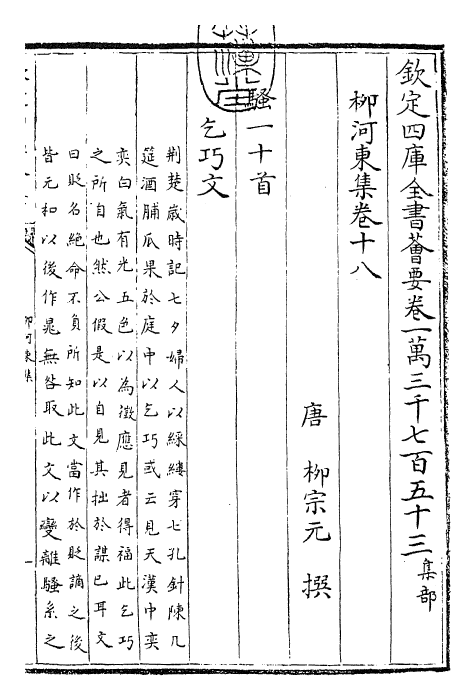 欽定四庫全書薈要卷一萬三千七百五十三集部
柳河東集卷十八
唐 柳宗元 撰
騷一十首
乞巧文
荆楚歲時記七夕婦人以綵縷穿七孔針陳几
筵酒脯瓜果於庭中以乞巧或云見天漢中奕
奕白氣有光五色以為徵應見者得福此乞巧
之所自也然公假是以自見其拙於謀已耳文
曰貶名絶命不負所知此文當作於貶謫之後
皆元和以後作晁無咎取此文以變離騷系之
柳河東集
一